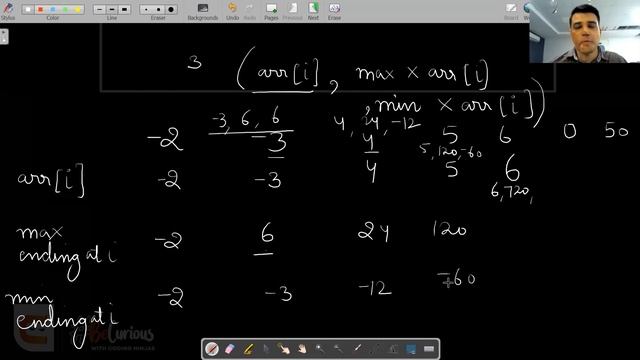 Stylus Color Line Backgrounds Undo Redo Eraser
3 (arr[i], max x arr[i]
, min x arr[i])
-3, 6, 6 4, 24, -12
-2 -3 4 5 6 0 50
5, 120, -60
arr[i] -2 -3 4 5 6
6, 720,
max ending at i -2 6 24 120
min ending at i -2 -3 -12 -60
Curious
WITH CODING NINJAS